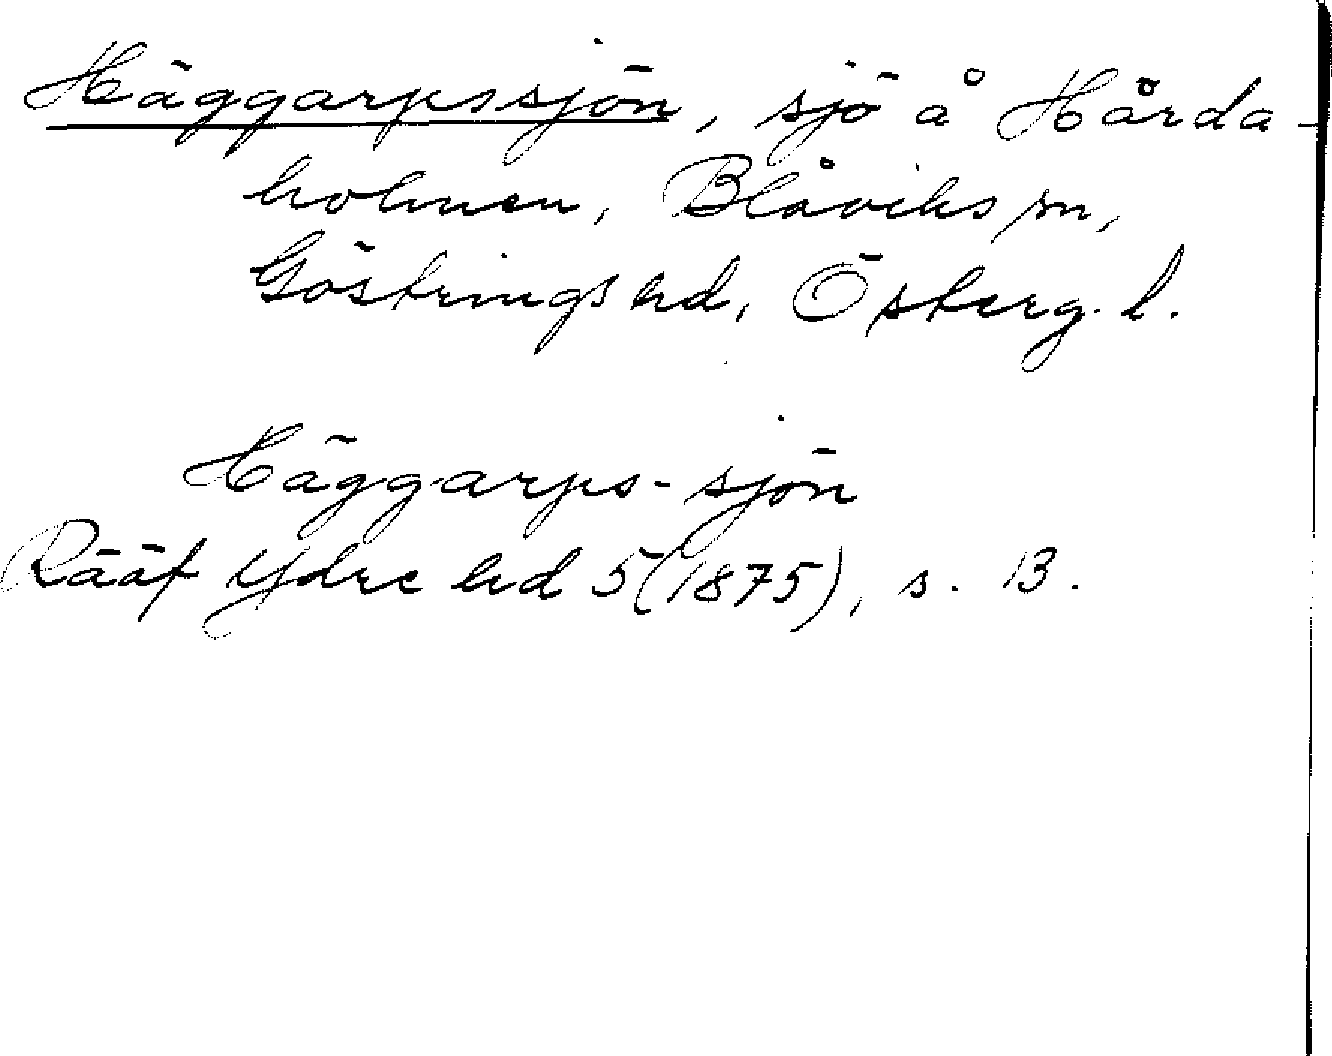 Häggarpssjön, sjö å Hårda-
holmen, Blåviks sn,
Göstrings hd, Österg. l.
Häggarps-sjön
Rääf Ydre hd 5 (1875), s. 13.